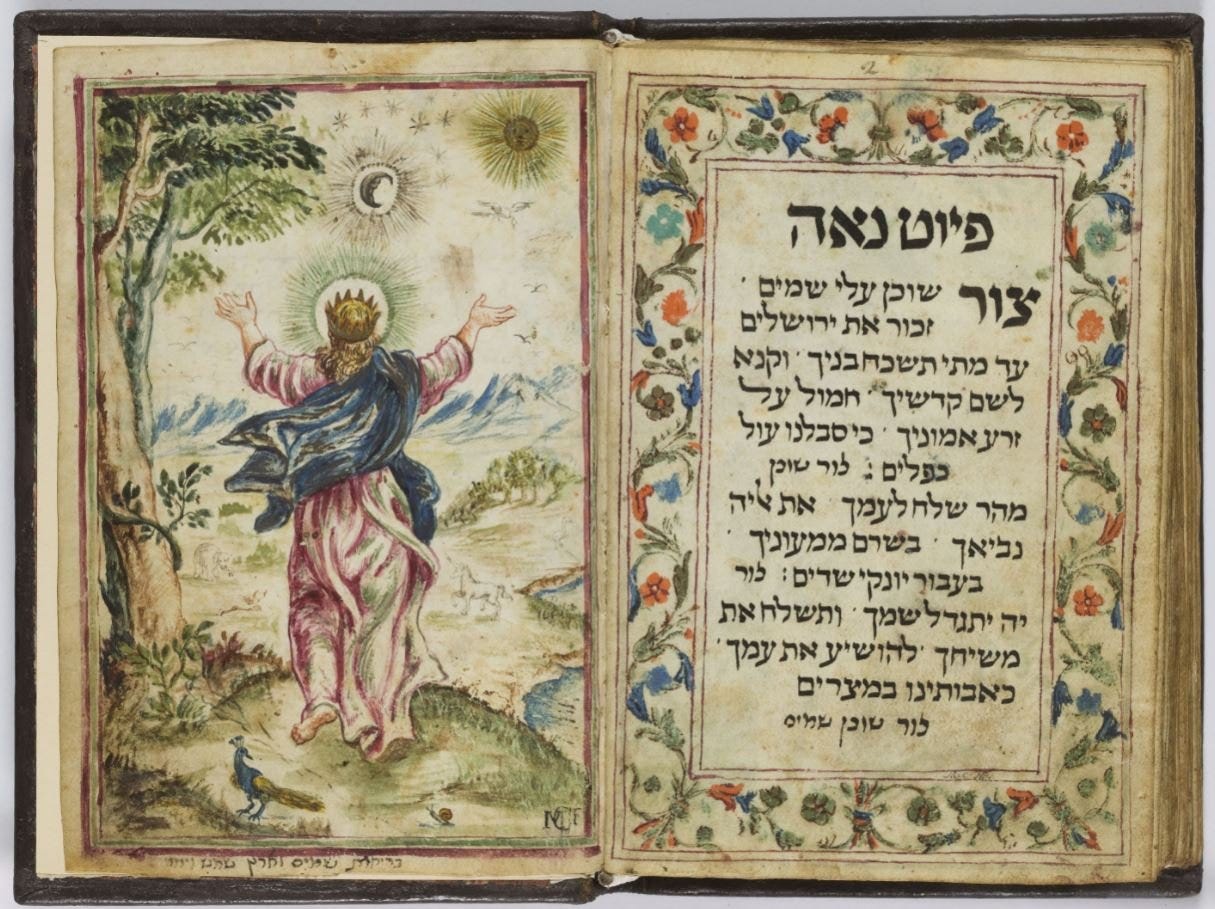 שמים וארץ שמש וירח
2
פיוט נאה
צור שוכן עלי שמים ·
זכור את ירושלים
עד מתי תשכח בניך · וקנא
לשם קדשיך · חמול על
זרע אמוניך · כי סבלנו עול
כפלים : צור שוכן
מהר שלח לעמך את אליה
נביאך · בשרם ממעוניך ·
בעבור יונקי שדים : צור
יה יתגדל שמך · ותשלח את
משיחך · להושיע את עמך ·
כאבותינו במצרים
צור שוכן שמים